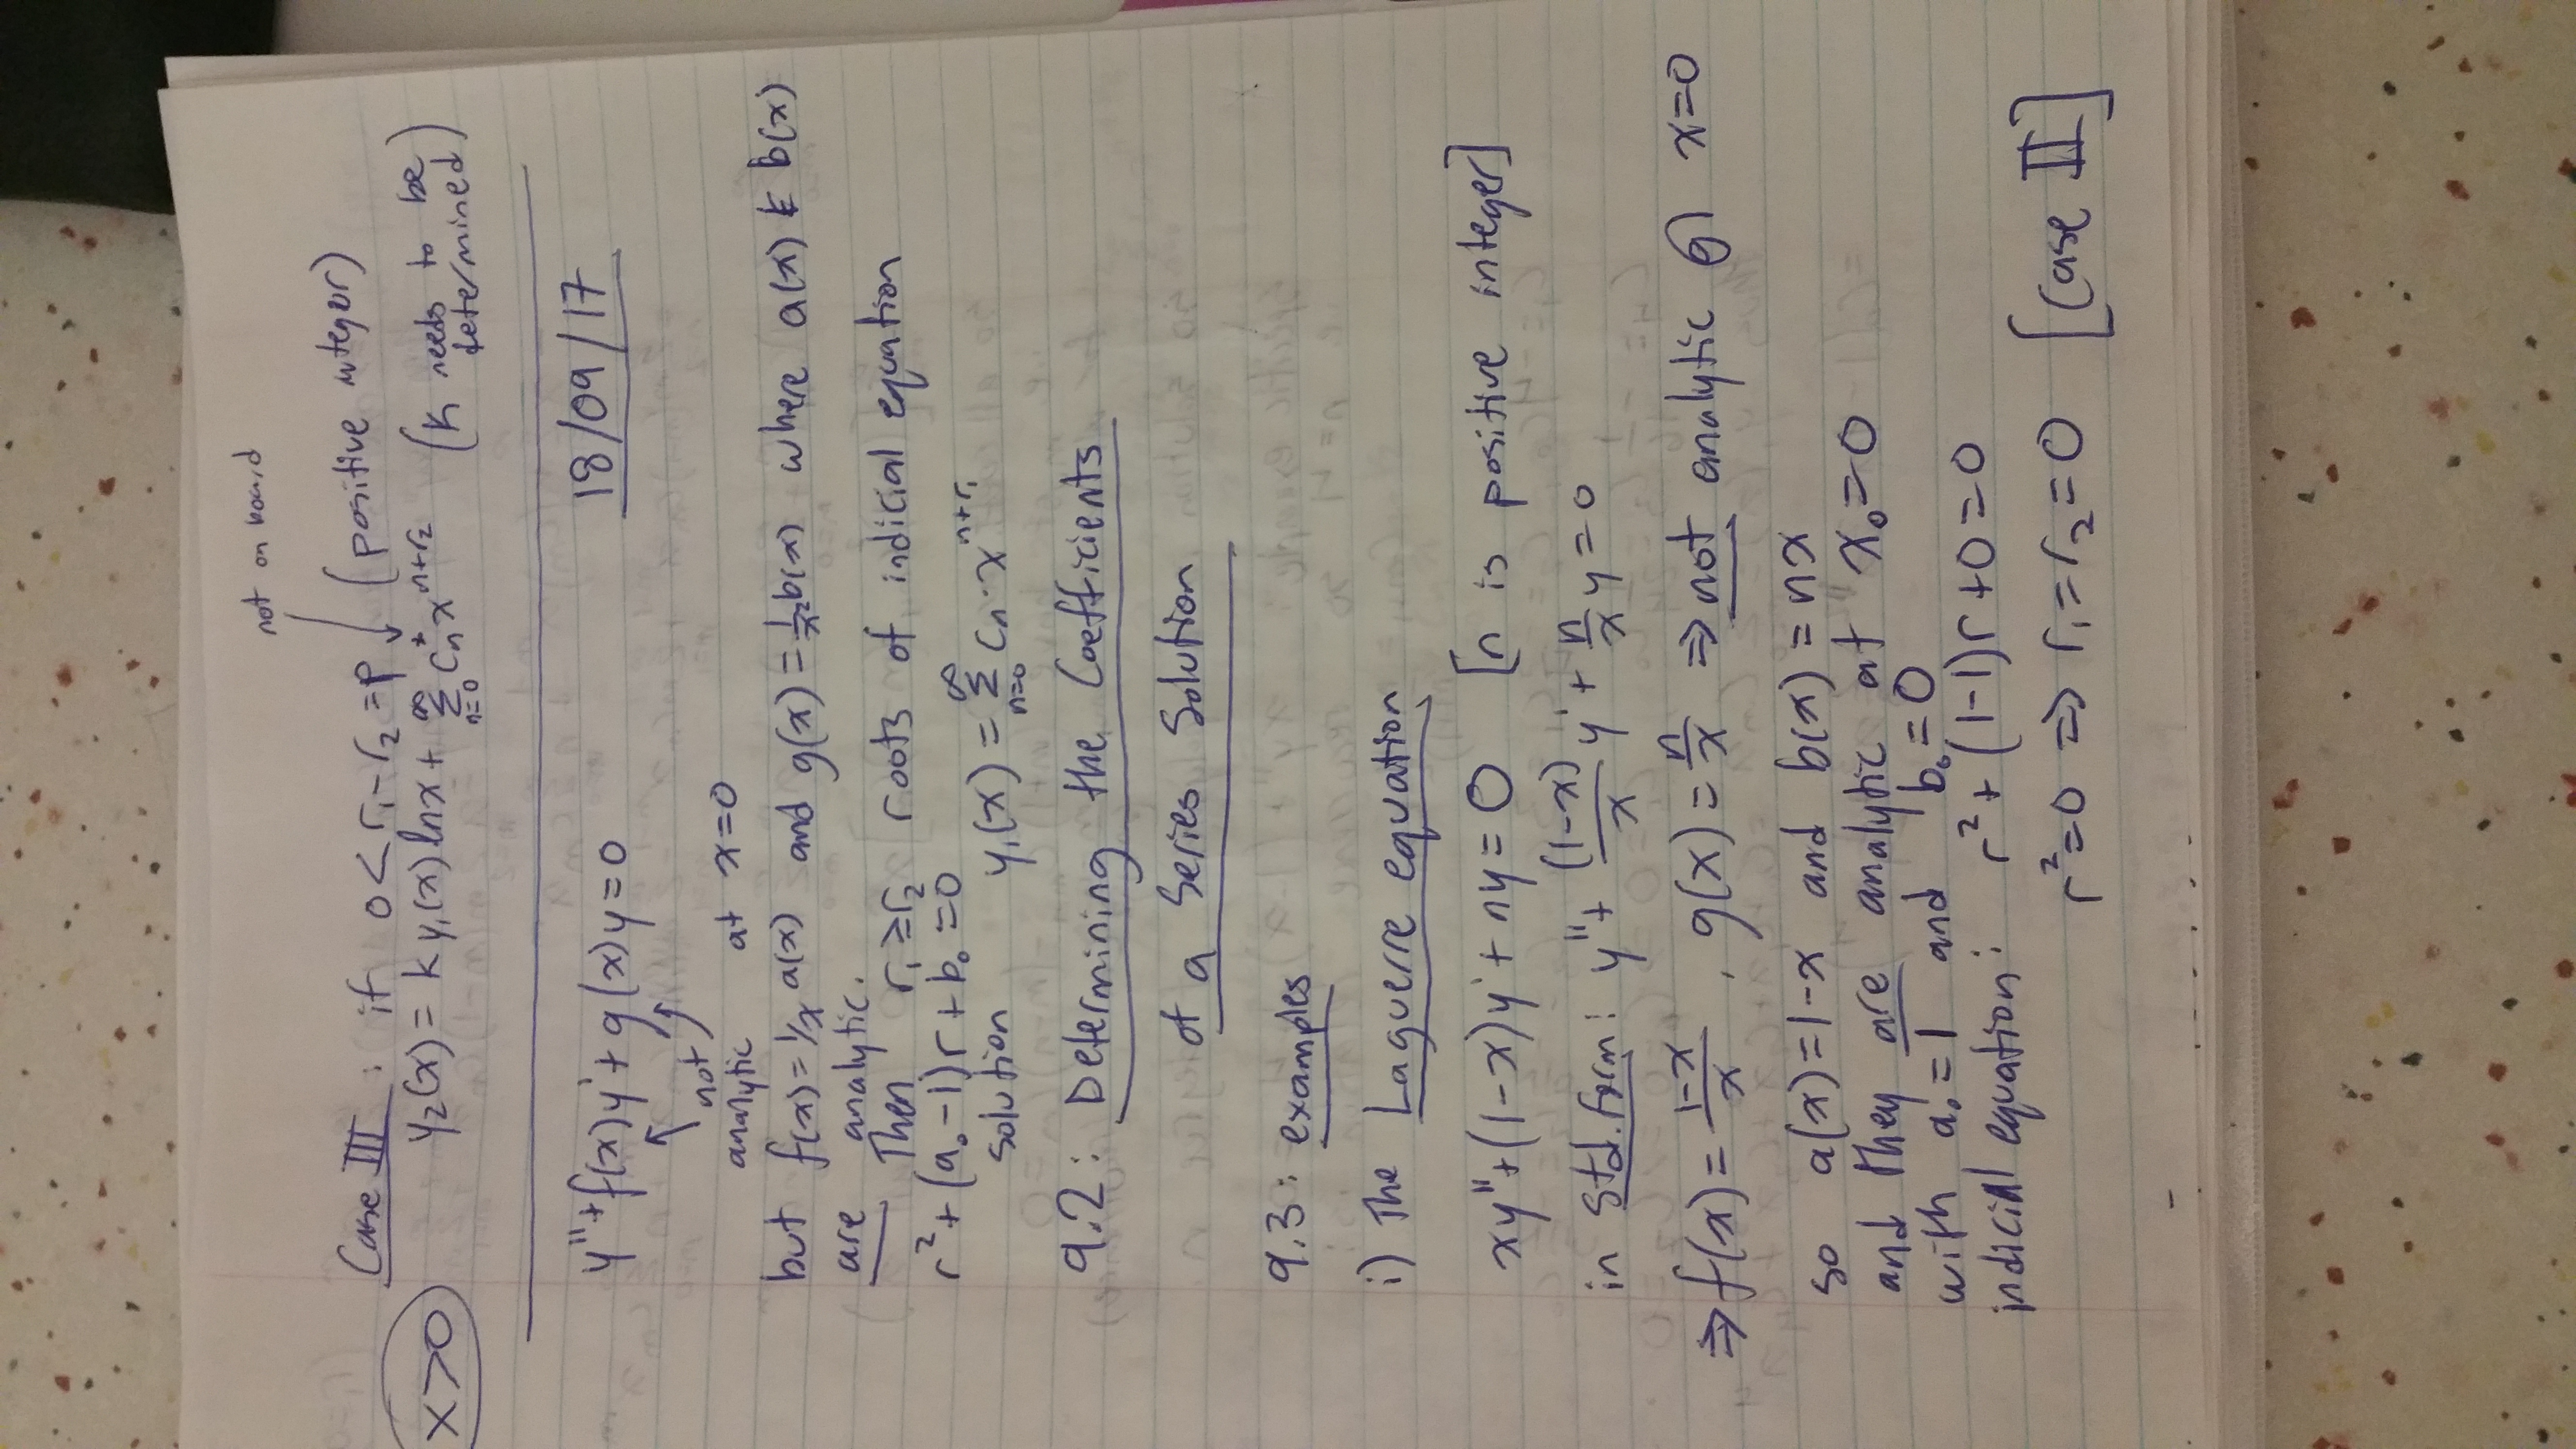 not on board
Case III : if 0 < r₁ - r₂ = p (positive integer)
x>0
y₂(x) = k y₁(x) ln x + ∑_{n=0}^{∞} Cₙ* x^{n+r₂} (k needs to be determined)
18/09/17
y'' + f(x)y' + g(x)y = 0
not analytic at x=0
but f(x) = 1/x a(x) and g(x) = 1/x² b(x) where a(x) & b(x)
are analytic.
Then r₁ ≥ r₂ roots of indicial equation
r² + (a₀ - 1)r + b₀ = 0
solution y₁(x) = ∑_{n=0}^{∞} Cₙ · x^{n+r₁}
9.2: Determining the Coefficients
of a Series Solution
9.3: examples
i) The Laguerre equation
xy'' + (1-x)y' + ny = 0 [n is positive integer]
in std. form: y'' + (1-x)/x y' + n/x y = 0
⇒ f(x) = (1-x)/x , g(x) = n/x ⇒ not analytic @ x=0
so a(x) = 1-x and b(x) = nx
and they are analytic at x₀=0
with a₀ = 1 and b₀ = 0
indicial equation: r² + (1-1)r + 0 = 0
r² = 0 ⇒ r₁ = r₂ = 0 [Case II]